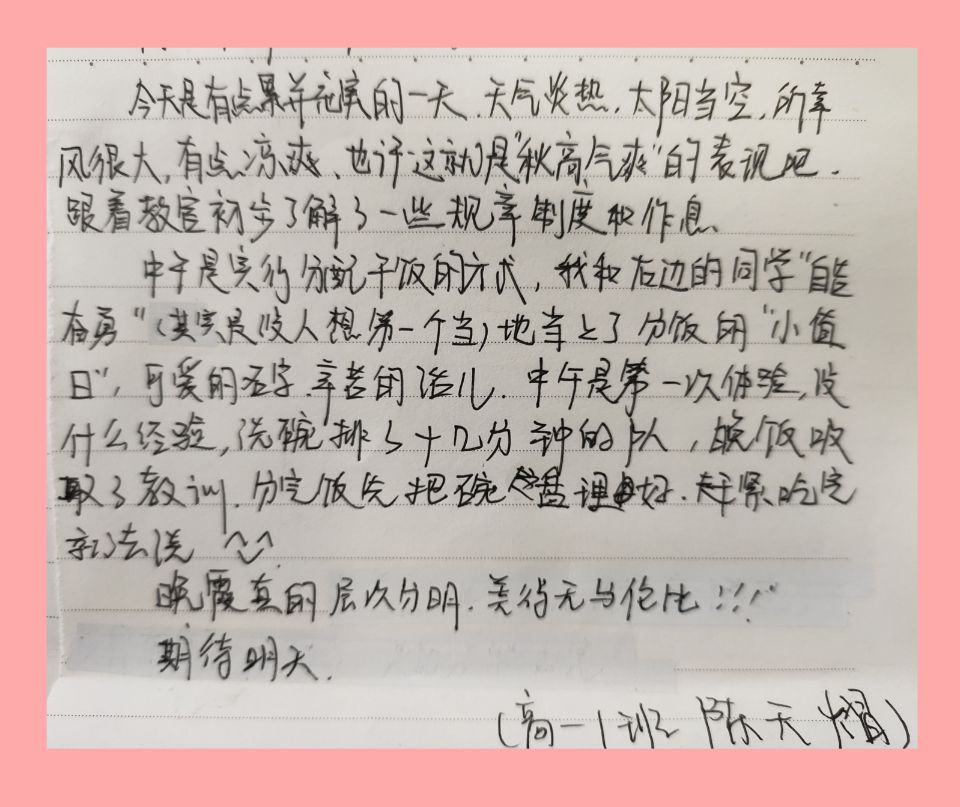 今天是有点累并充实的一天,天气炎热,太阳当空,所幸
风很大,有点凉爽、也许这就是"秋高气爽"的表现吧.
跟着教官初步了解了一些规章制度和作息.
中午是实行分配午饭的方式,我和右边的同学"自告
奋勇"(其实是没人想第一个当)地当上了分饭的"小值
日",可爱的名字.辛苦的活儿.中午是第一次体验,没
什么经验,洗碗排了十几分钟的队,晚饭吸
取了教训.分完饭先把碗 整理好.赶紧吃完
就去洗 ^^
晚霞真的层次分明.美得无与伦比!!!
期待明天.
(高一1班 陈天 )